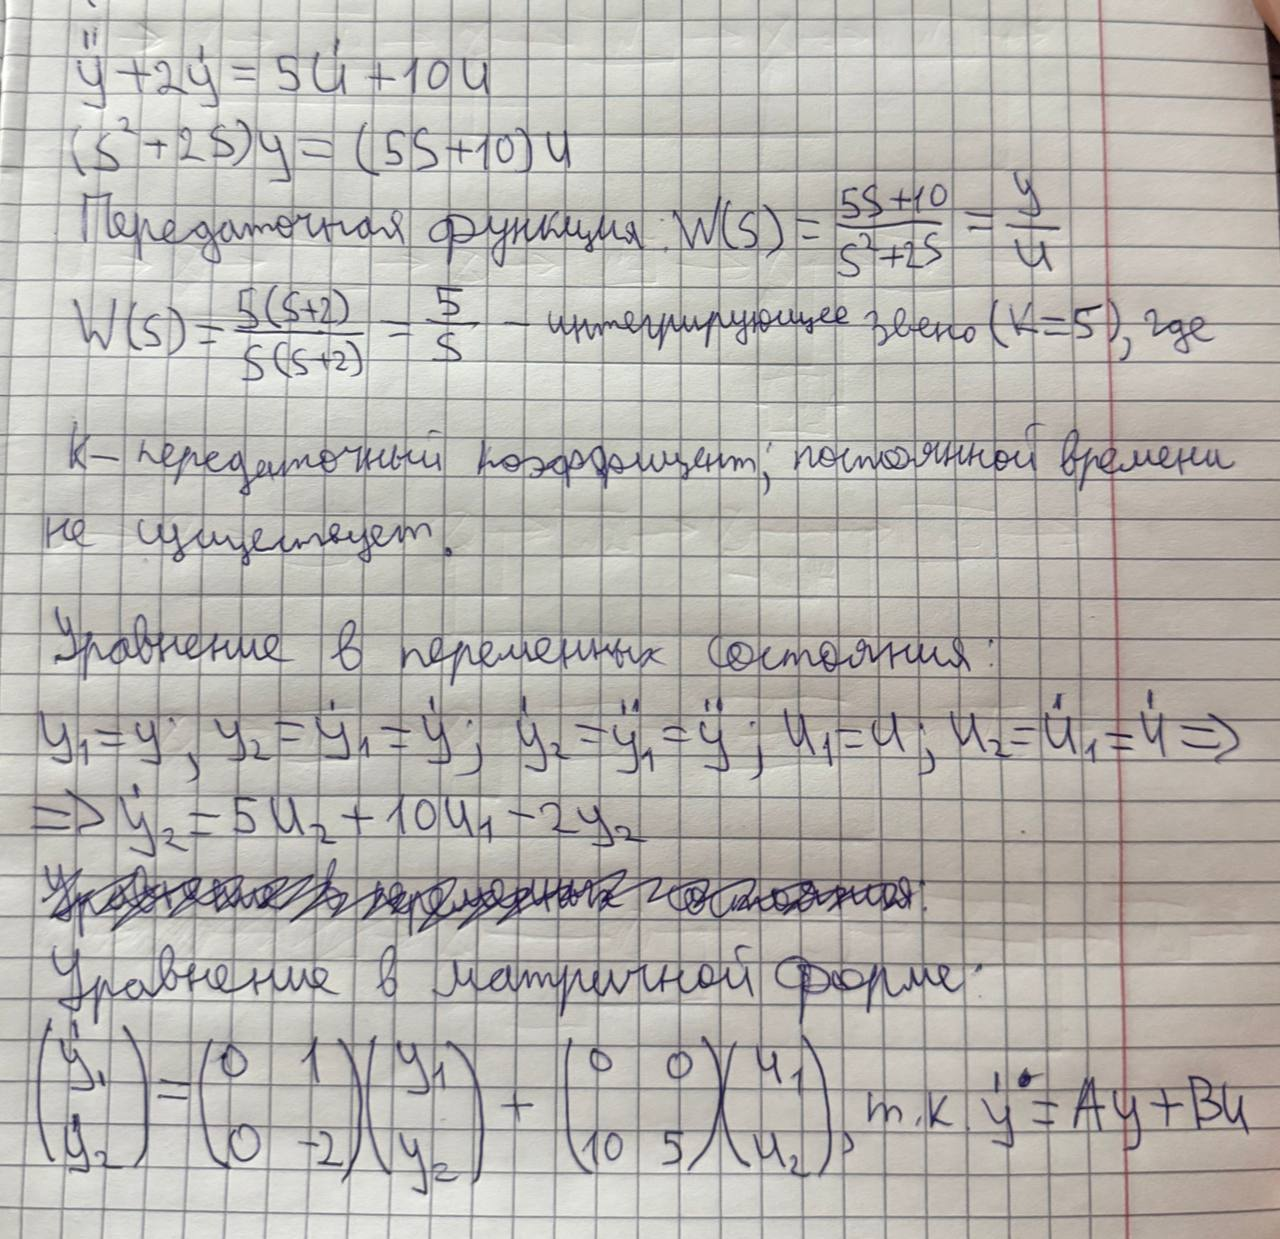 ÿ + 2ẏ = 5u̇ + 10u
(s² + 2s)y = (5s + 10)u
Передаточная функция: W(s) = (5s + 10)/(s² + 2s) = y/u
W(s) = 5(s+2)/(s(s+2)) = 5/s – интегрирующее звено (k=5), где
k – передаточный коэффициент; постоянной времени
не существует.
Уравнение в переменных состояния:
y₁ = y; y₂ = ẏ₁ = ẏ; ẏ₂ = ÿ₁ = ÿ; u₁ = u; u₂ = u̇₁ = u̇ =>
=> ẏ₂ = 5u₂ + 10u₁ - 2y₂
Уравнение в матричной форме:
(ẏ₁ ; ẏ₂) = (0 1 ; 0 -2)(y₁ ; y₂) + (0 0 ; 10 5)(u₁ ; u₂), т.к. ẏ = Ay + Bu